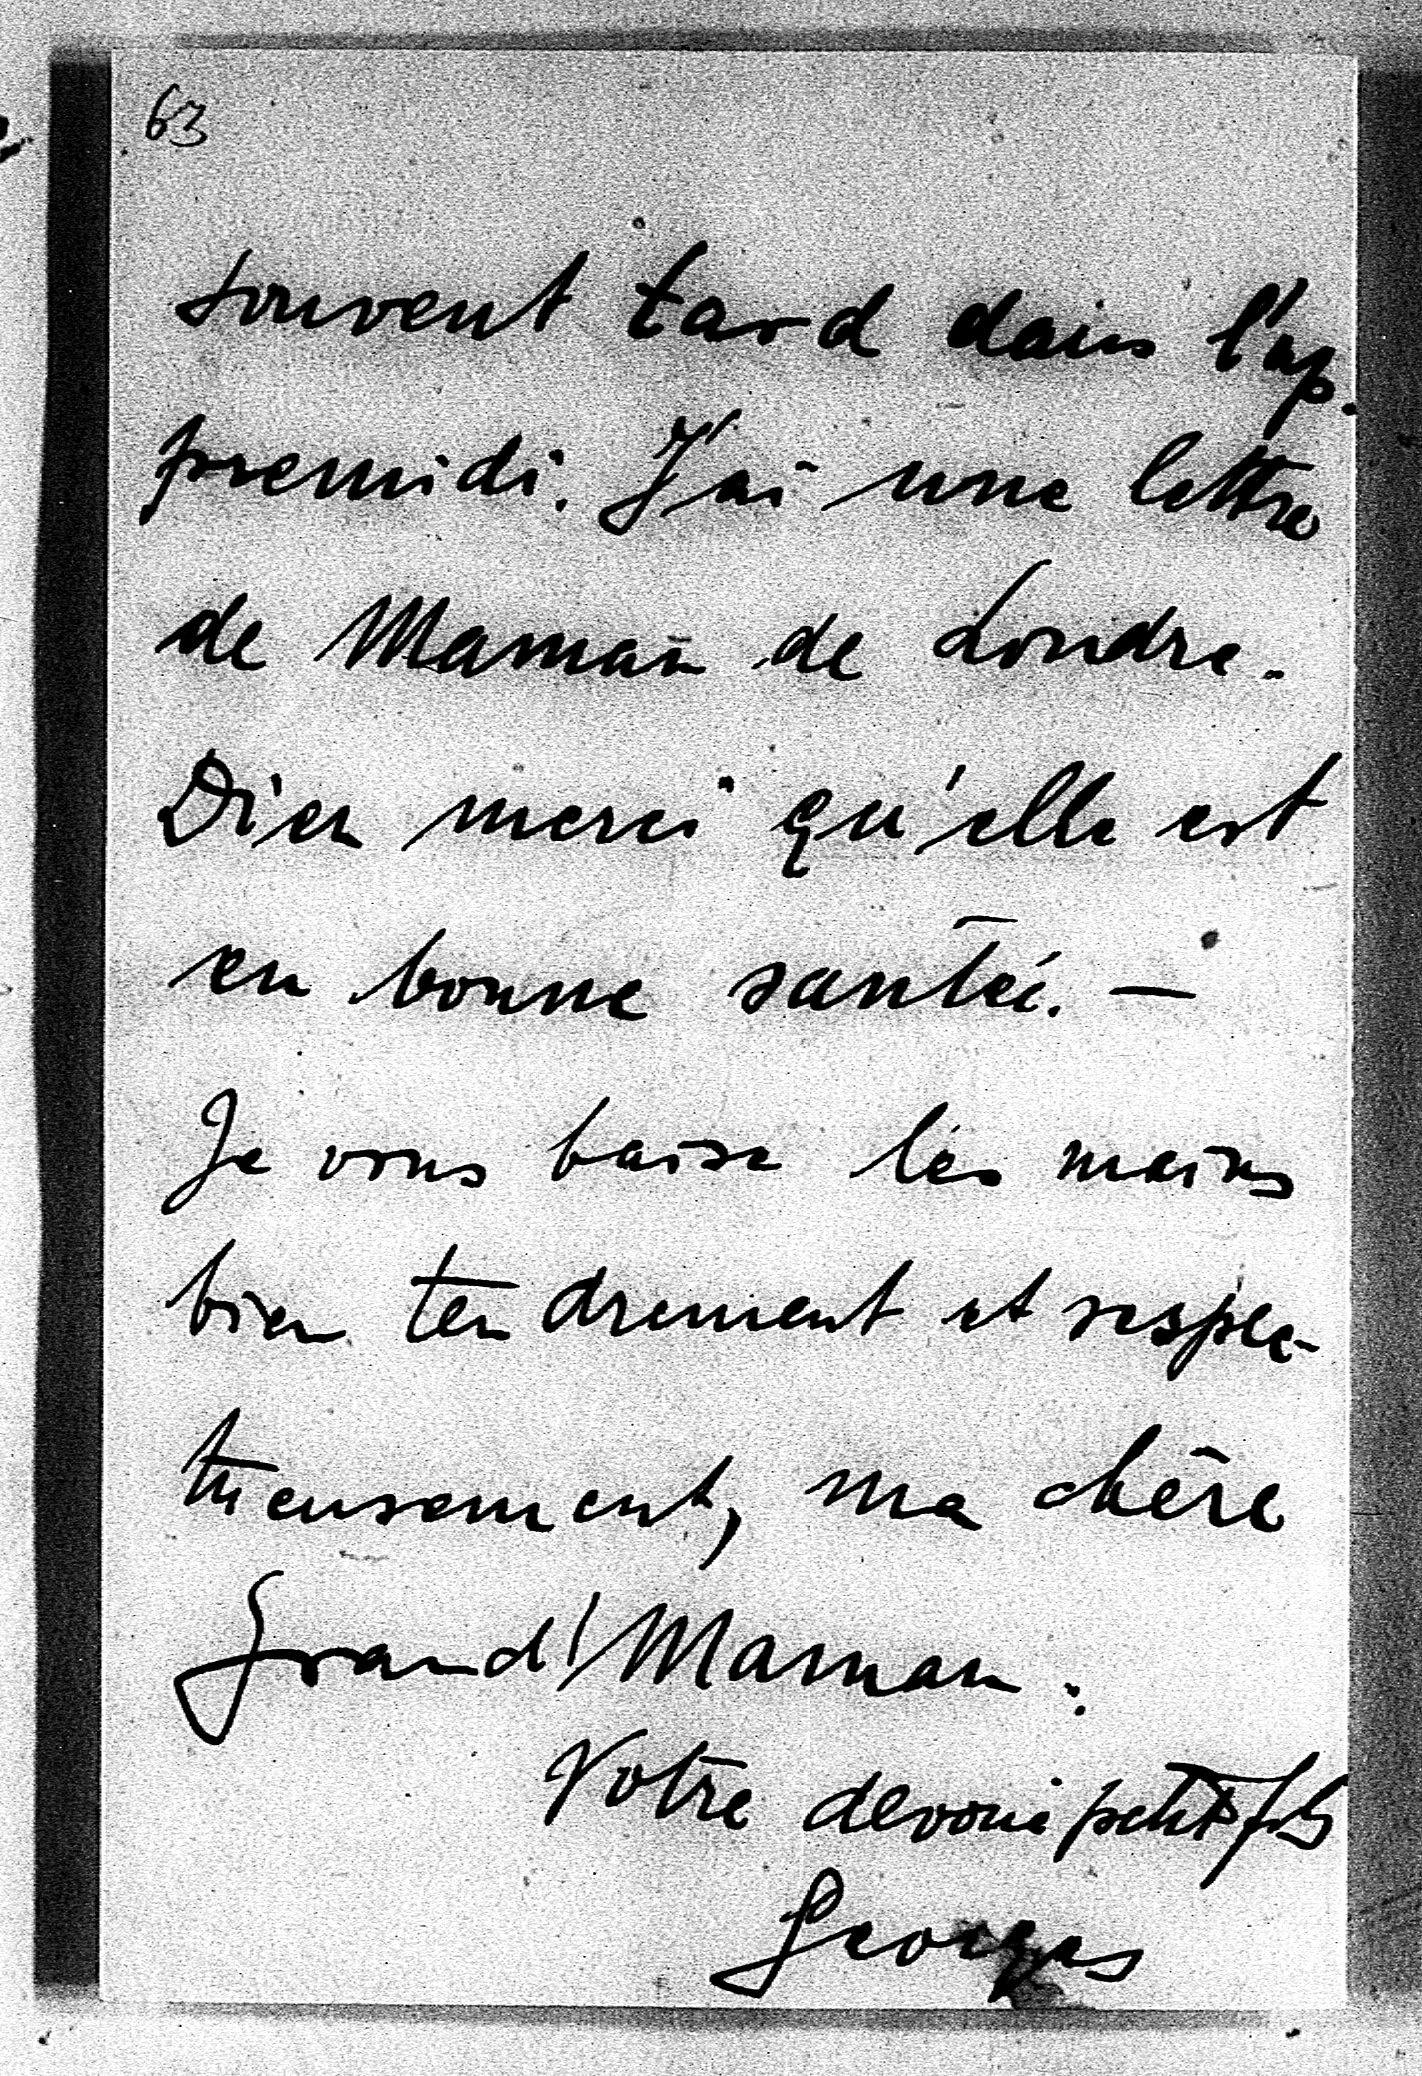 63
souvent tard dans l'ap.
premidi. J'ai une lettre
de Maman de Londre.
Dieu merci qu'elle est
en bonne santée. —
Je vous baise les mains
bien tendrement et respec-
tueusement, ma chère
Grand'Maman.
Votre devoué petit fils
Georges